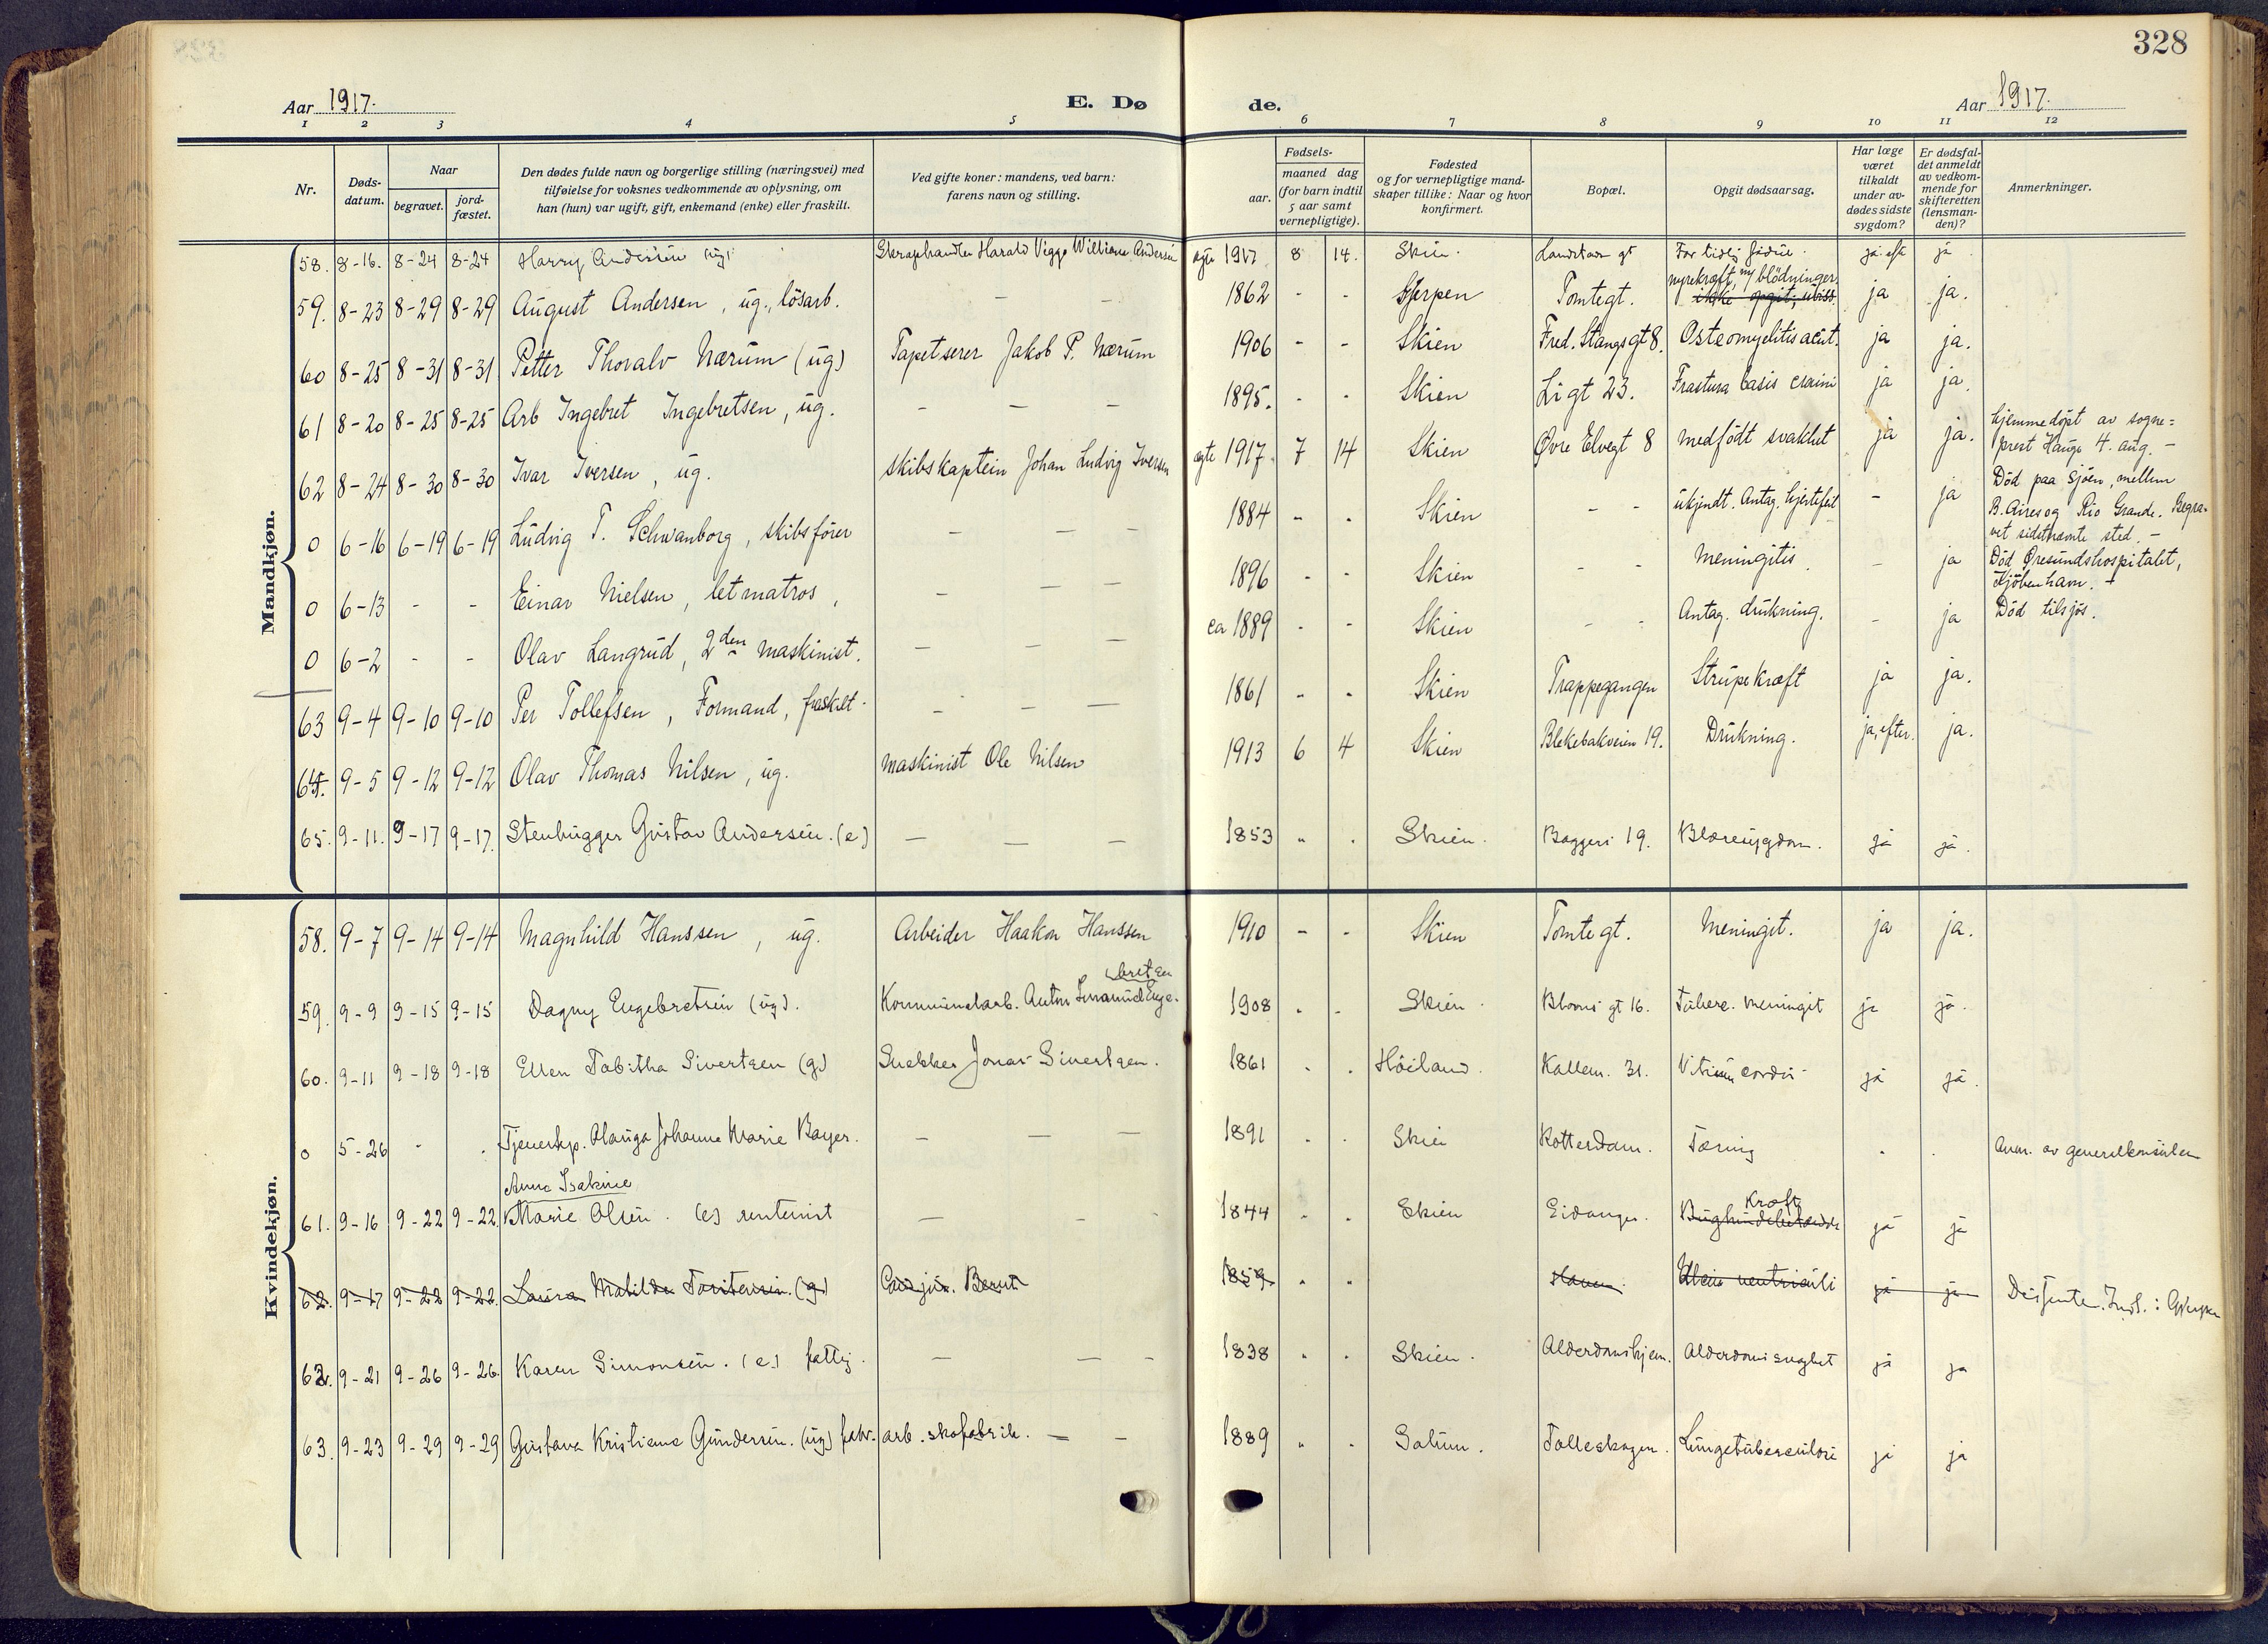 328
Aar 1917.
E. Dø
de.
Aar 1917.
1 2 3 4 5 6 7 8 9 10 11 12
Nr.
Døds-
datum.
Naar
begravet.
jord-
fæstet.
Den dødes fulde navn og borgerlige stilling (næringsvei) med
tilføielse for voksnes vedkommende av oplysning, om
han (hun) var ugift, gift, enkemand (enke) eller fraskilt.
Ved gifte koner: mandens, ved barn:
farens navn og stilling.
Fødsels-
aar.
maaned dag
(for barn indtil
5 aar samt
vernepligtige).
Fødested
og for vernepligtige mand-
skaper tillike: Naar og hvor
konfirmert.
Bopæl.
Opgit dødsaarsag.
Har læge
været
tilkaldt
under av-
dødes sidste
sygdom?
Er dødsfal-
det anmeldt
av vedkom-
mende for
skifteretten
(lensman-
den)?
Anmerkninger.
Mandkjøn.
58. 8-16. 8-24 8-24 Harry Andersen (ug) Skraphandler Harald Viggo William Andersen egte 1917 8 14. Skien. Landstad gt For tidlig födsel. ja eft ja
59. 8-23 8-29 8-29 August Andersen, ug., lösarb. - - 1862 - - Gjerpen Tomtegt. nyrekræft, m/ blödninger. ikke opgit, ubiss ja ja.
60 8-25 8-31 8-31 Petter Thoralv Nærum (ug) Tapetserer Jakob P. Nærum 1906 - - Skien Fred. Stangsgt 8. Osteomyelitis acut. ja ja.
61 8-20 8-25 8-25 Arb Ingebret Ingebretsen, ug. - - - 1895. - - Skien Ligt 23. Frastura basis cranii ja ja.
62 8-24 8-30 8-30 Ivar Iversen, ug. skibskaptein Johan Ludvig Iversen egte 1917. 7 14 Skien Øvre Elvegt 8 medfödt svakhet ja ja. hjemmedöpt av sogne=
prest Hauge 4. aug. -
0 6-16 6-19 6-19 Ludvig T. Schwanborg, skibsförer - - 1884 - - Skien - - ukjendt. Antag. hjertefeil - ja Död paa Sjöen, mellem
B. Aires og Rio Grande. Begra-
vet sidstnævnte sted. -
0 6-13 - - Einar Nielsen, letmatros, - - - 1896 - - Skien - - Meningitis. - ja Död Øresundshospitalet,
Kjöbenhavn. -
0 6-2 - - Olav Langrud, 2den Maskinist. - - - ca 1889 - - Skien - - Antag. drukning. - ja Död tilsjös.
63 9-4 9-10 9-10 Per Tollefsen, Formand, fraskilt. - - - 1861 - - Skien Trappegangen Strupekræft ja ja.
64. 9-5 9-12 9-12 Olav Thomas Nilsen, ug. maskinist Ole Nilsen 1913 6 4 Skien Blekebakveien 19. Drukning. ja, efter. ja.
65. 9-11. 9-17 9-17. Stenhugger Gustav Andersen. (e) - - - 1853 - - Skien. Baggeri 19. Blæresygdom. ja ja.
Kvindekjøn.
58. 9-7 9-14 9-14 Magnhild Hanssen, ug. Arbeider Haakon Hanssen 1910 - - Skien Tomtegt. Meningit. ja ja.
59. 9-9 9-15 9-15 Dagny Engebretsen (ug). Kommunelarb. Anton Enge-
bretsen 1908 - - Skien Bloms gt 16. Tuberc. meningit ja ja.
60. 9-11 9-18 9-18 Ellen Tabitha Sivertsen (g.) Snekker Jonas Sivertsen. 1861 - - Höiland. Kallem. 31. Vitium cordis ja ja.
0 5-26 - - Tjenerhp. Olauga Johanne Marie Bayer. - - - 1891 - - Skien Rotterdam. Tæring - - Anm. av generalkonsulen
Anna Isakine
61. 9-16 9-22 9-22. Marie Olsen. (e) rentenist - - - 1844 - - Skien Eidanger. Kræft ja ja
62. 9-17 9-22 9-22. Laura Matilde Torstensen. (g) 1859. - - ventriculi ja ja Dissenter.
62. 9-21 9-26 9-26. Karen Simonsen. (e) fattig. - - - 1838 - - Skien. Alderdomshjem. Alderdomssvaghet ja ja
63. 9-23 9-29 9-29 Gustava Kristiane Gundersen. (ug) fabr. arb. skofabrik. - - 1889 - - Solum. Falleskogen. Lungetuberculose ja ja